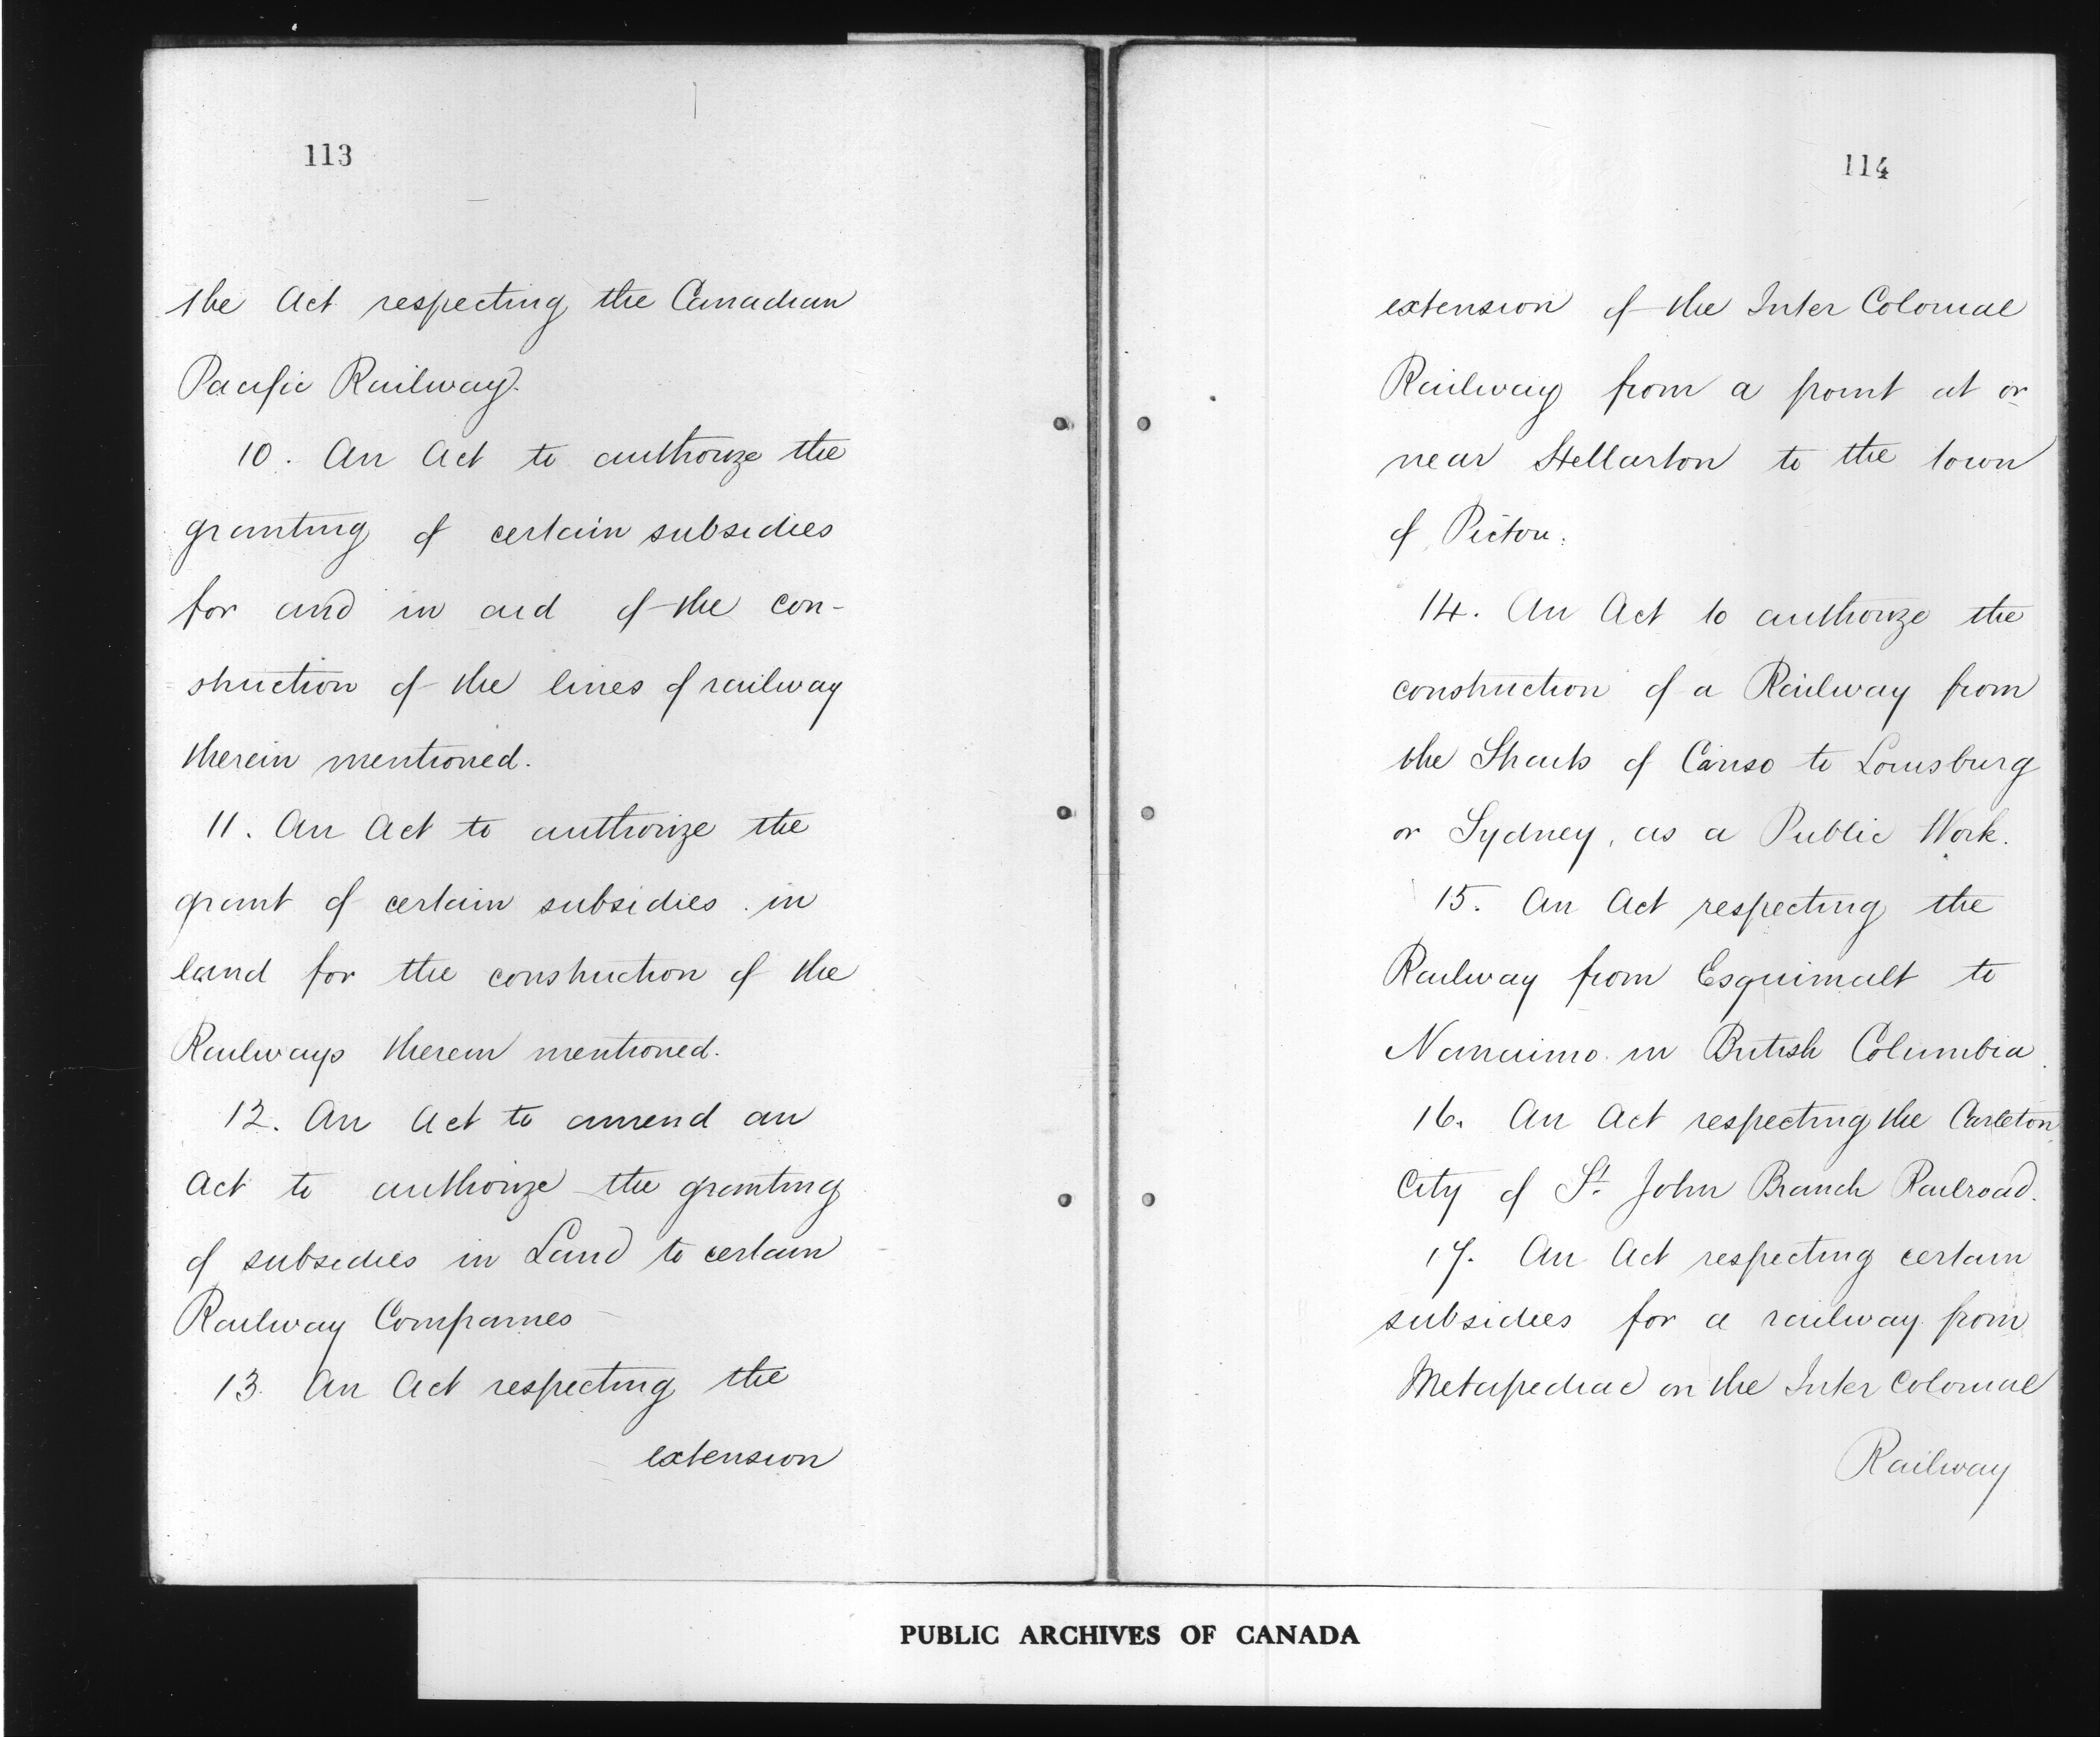 113
the Act respecting the Canadian
Pacific Railway.
10. An Act to authorize the
granting of certain subsidies
for and in aid of the con-
struction of the lines of railway
therein mentioned.
11. An Act to authorize the
grant of certain subsidies in
land for the construction of the
Railways therein mentioned.
12. An Act to amend an
Act to authorize the granting
of subsidies in Land to certain
Railway Companies
13. An Act respecting the
extension
114
extension of the Inter Colonial
Railway from a point at or
near Stellarton to the town
of Pictou.
14. An Act to authorize the
construction of a Railway from
the Straits of Canso to Louisburg
or Sydney, as a Public Work.
15. An Act respecting the
Railway from Esquimalt to
Nanaimo in British Columbia.
16. An Act respecting the Carleton,
City of St. John Branch Railroad.
17. An Act respecting certain
subsidies for a railway from
Metapediac on the Inter Colonial
Railway
PUBLIC ARCHIVES OF CANADA